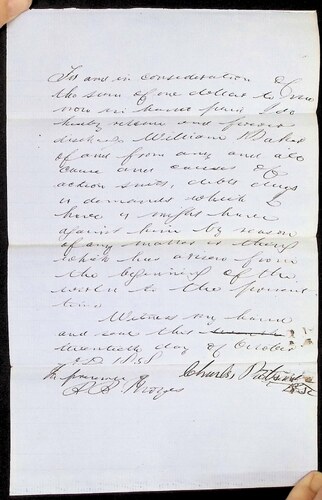 For and in consideration of
the sum of one dollar to me
now in hand paid I do
hereby release and forever
discharge William
of and from any and all
cause and causes of
action suits, debts dues
or demands which I
have or might have
against him by reason
of any matter or thing
which has arisen from
the beginning of the
world to the present
time
Witness my hand
and seal this
twentieth day of October
A D 1858
In presence of Charles